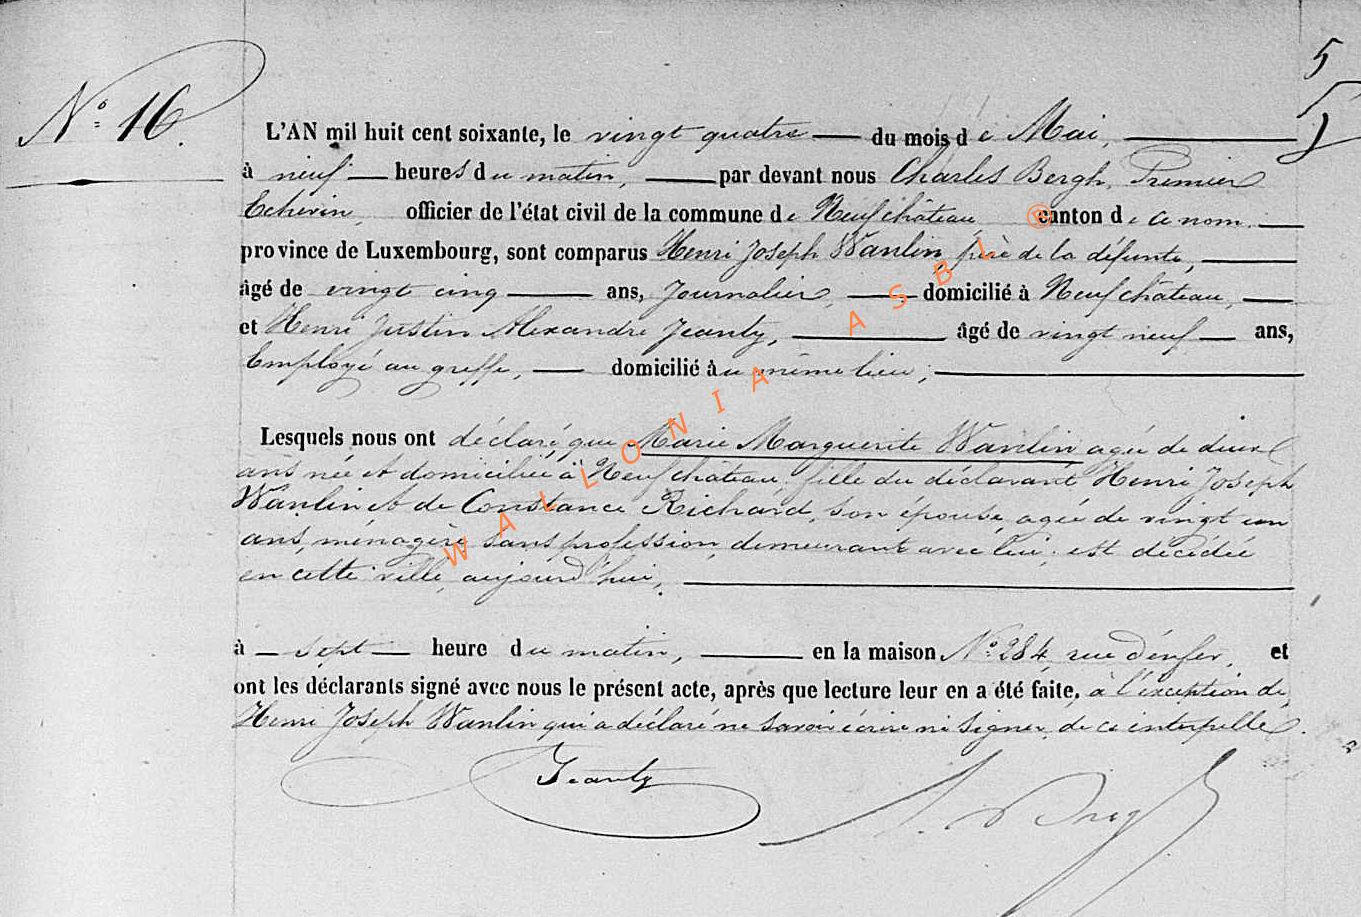 5
N° 16.
L'AN mil huit cent soixante, le vingt quatre du mois de Mai,
à neuf heures du matin, par devant nous Charles Bergh, Premier
Echevin officier de l'état civil de la commune de Neufchâteau canton de ce nom
province de Luxembourg, sont comparus Henri Joseph Wanlin, père de la défunte,
âgé de vingt cinq ans, Journalier, domicilié à Neufchâteau,
et Henri Justin Alexandre Jeanty, âgé de vingt neuf ans,
Employé au greffe, domicilié au même lieu;
Lesquels nous ont déclaré que Marie Marguerite Wanlin agée de deux
ans née et domiciliée à Neufchâteau, fille du déclarant Henri Joseph
Wanlin et de Constance Richard, son épouse, agée de vingt un
ans, ménagère sans profession, demeurant avec lui; est décédée
en cette ville, aujourd'hui,
à sept heure du matin, en la maison N° 284, rue d'enfer, et
ont les déclarants signé avec nous le présent acte, après que lecture leur en a été faite, à l'exception de
Henri Joseph Wanlin qui a déclaré ne savoir écrire ni signer, de ce interpellé.
Jeanty
WALLONIA ASBL ®